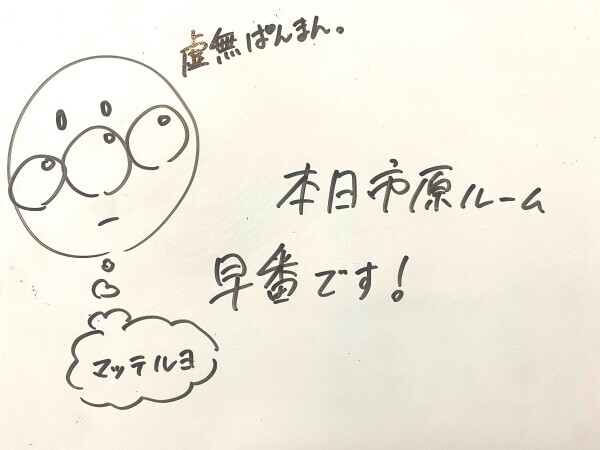 虚無ぱんまん。
本日市原ルーム
早番です!
マッテルヨ